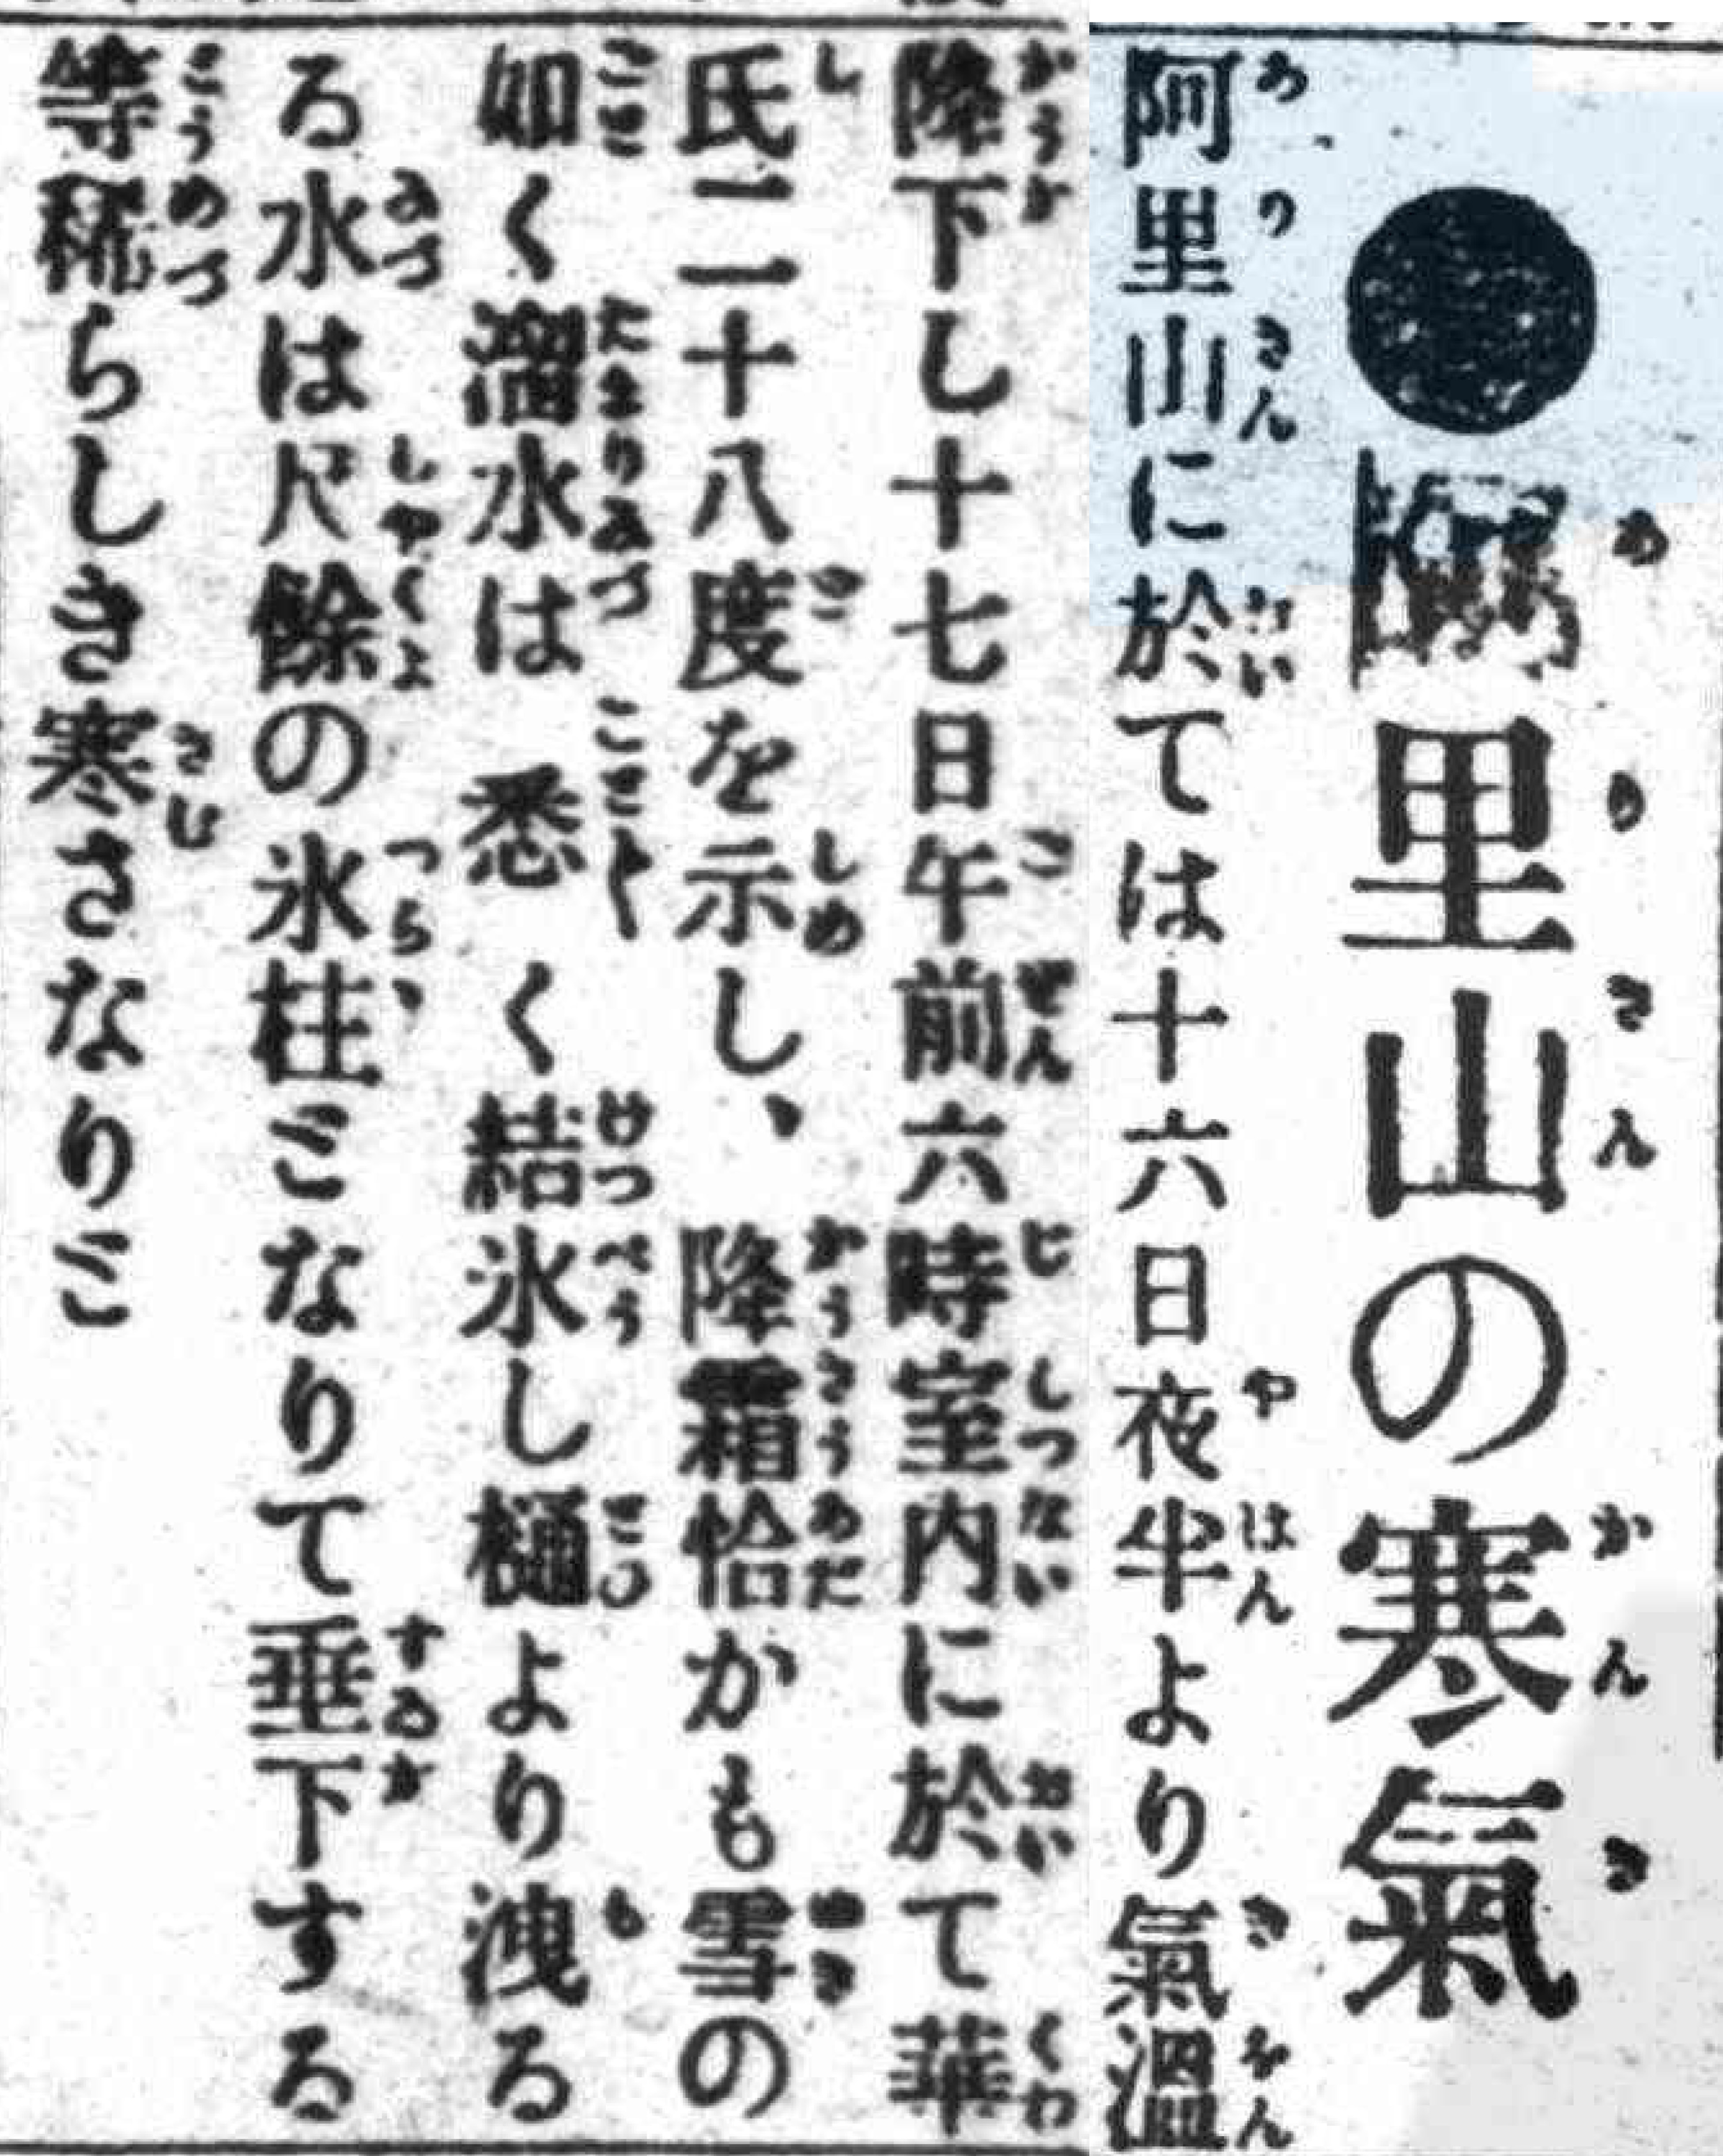 ●阿里山の寒氣
阿里山に於ては十六日夜半より氣溫
降下し十七日午前六時室内に於て華
氏二十八度を示し、降霜恰かも雪の
如く溜水は悉く結氷し樋より洩る
る水は尺餘の氷柱となりて垂下する
等稀らしき寒さなりと